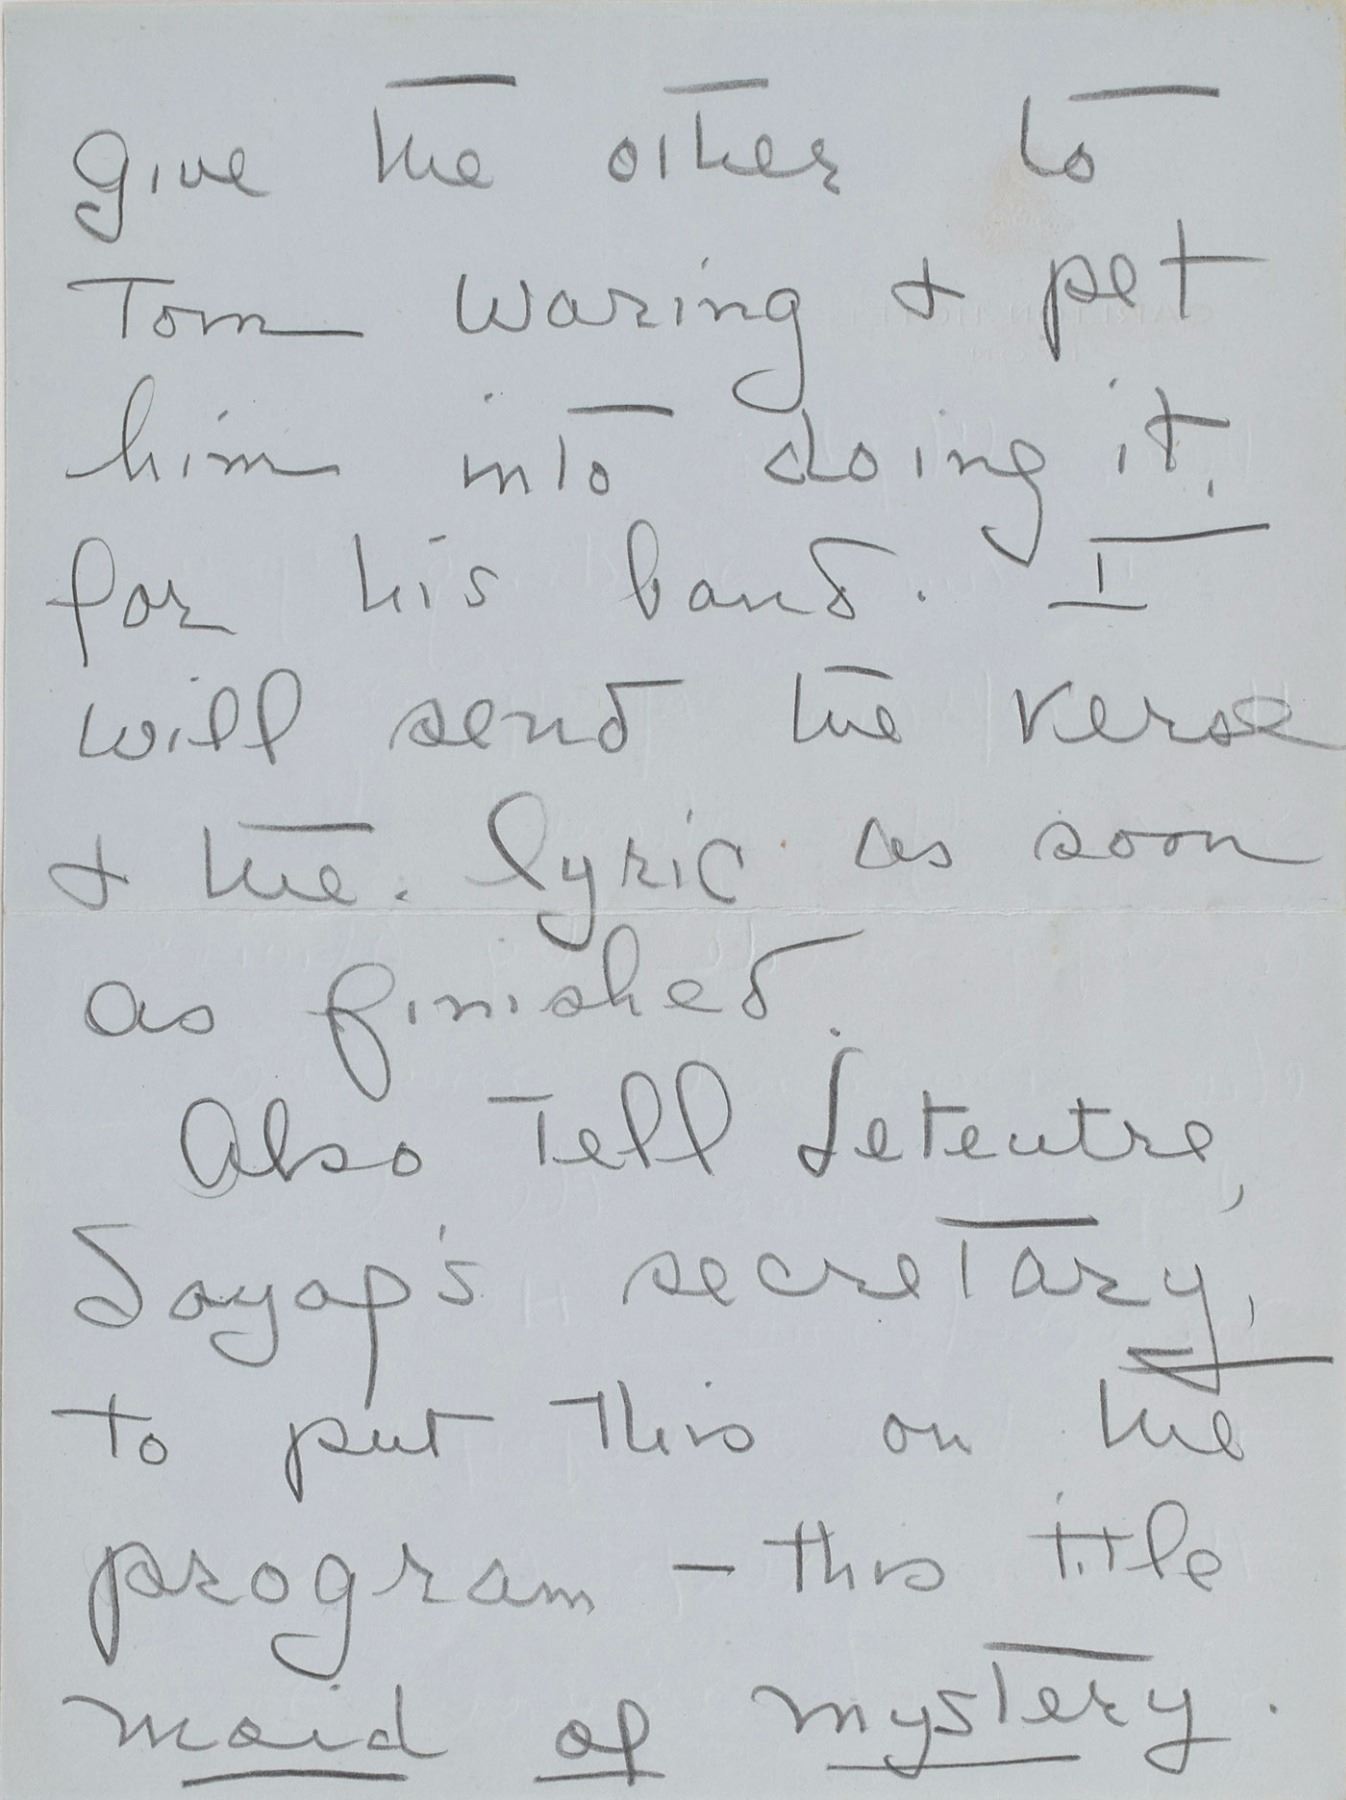 give the other to
Tom Waring & pet
him into doing it,
for his band. I
will send the verse
& the. lyric as soon
as finished.
Also Tell Letentre,
Sayap's secretary,
to put this on the
program – this title
Maid of Mystery.